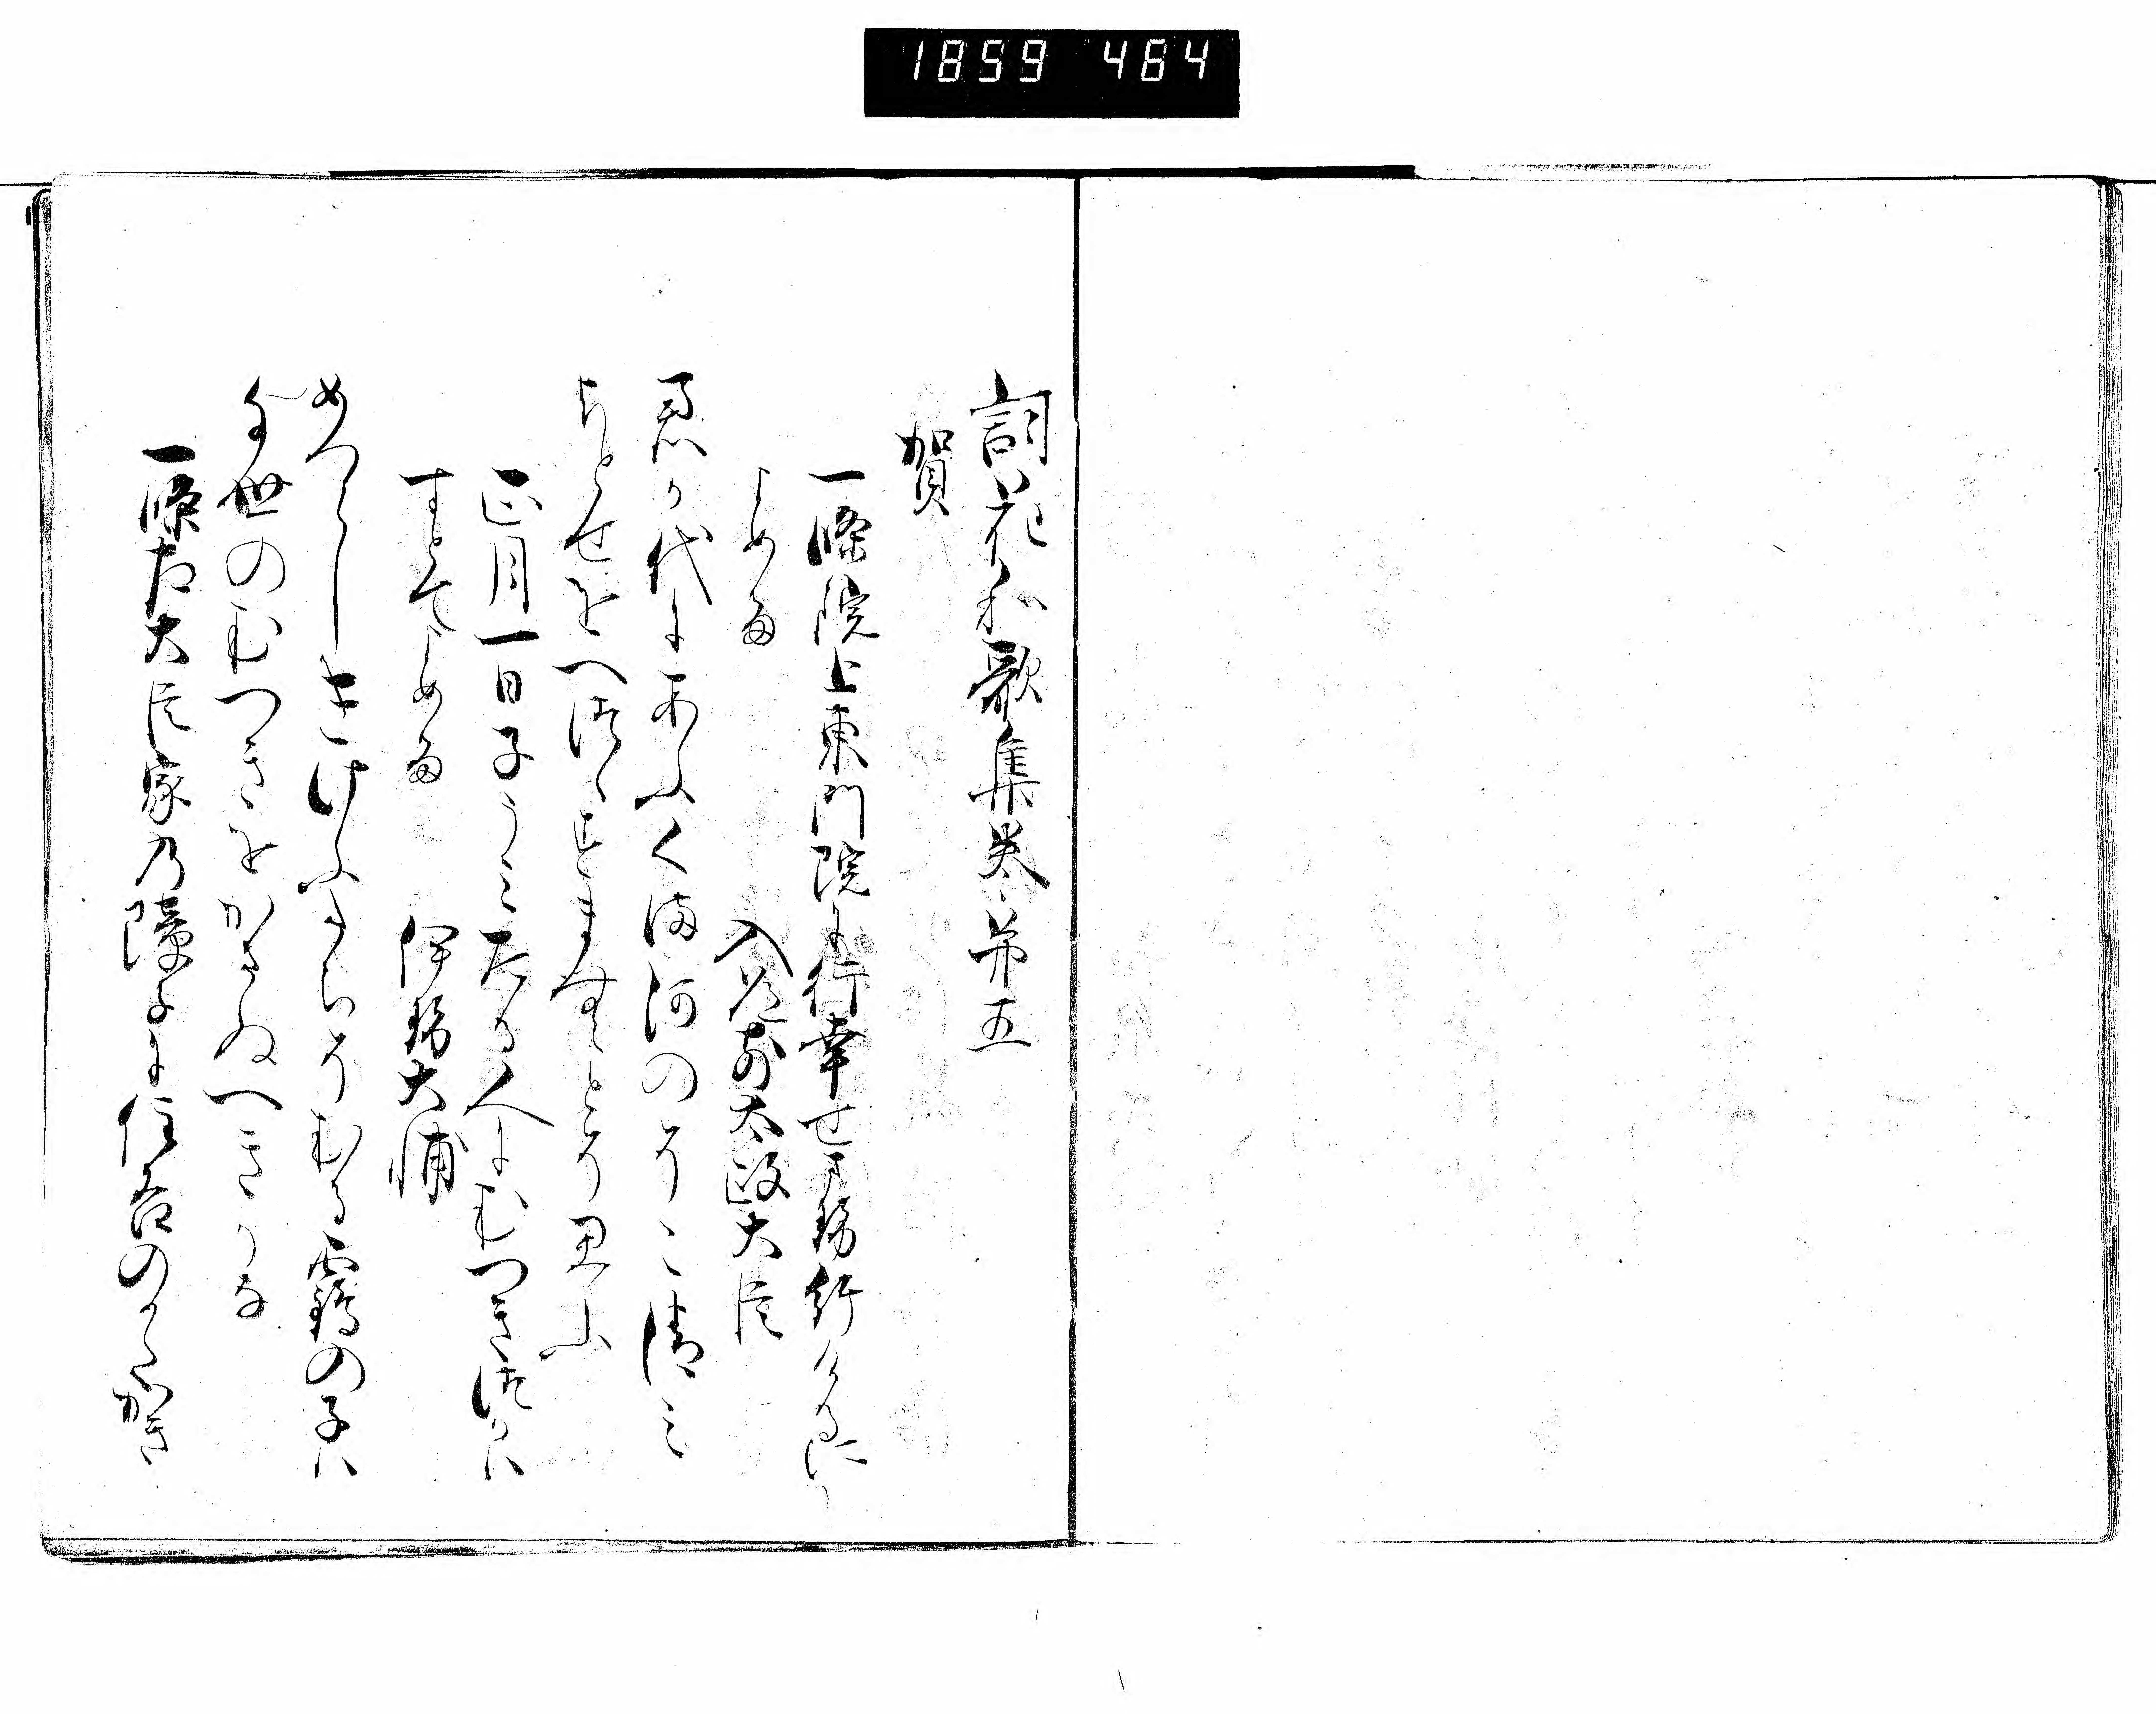 1859 484
詞花和歌集巻第五
賀
一條院上東門院に行幸せさせ給けるに
よめる
入道前太政大臣
君か代にあふくま河のそこ清み
ちとせをへつゝすまむとそ思ふ
正月一日子うみたる人にむつきつかは
すとてよめる
伊勢大輔
めつらしきけふたちそむる靏の子は
千世のむつきをかさぬへきかな
一條左大臣家乃障子に住吉のかたかき